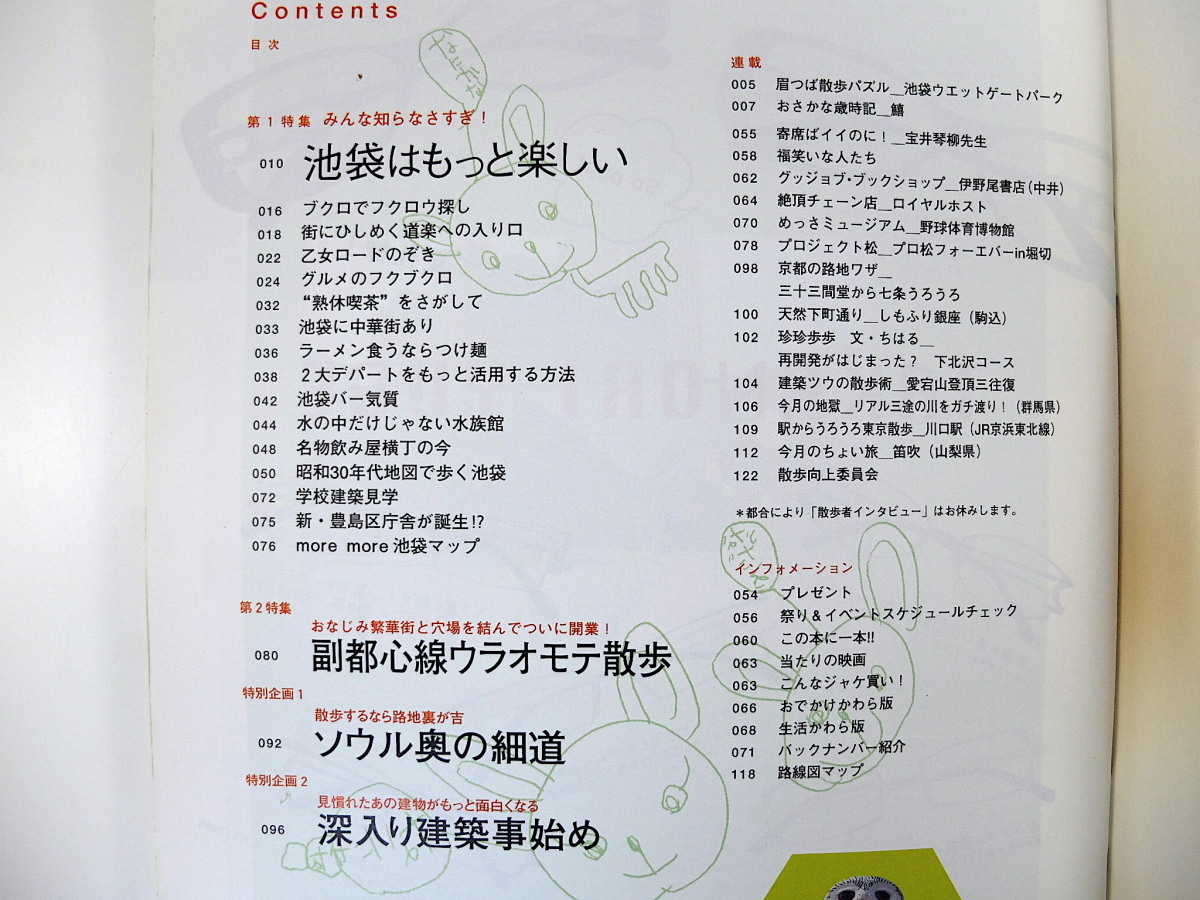 Contents
目次
第1特集 みんな知らなさすぎ！
010 池袋はもっと楽しい
016 ブクロでフクロウ探し
018 街にひしめく道楽への入り口
022 乙女ロードのぞき
024 グルメのフクブクロ
032 “熟休喫茶”をさがして
033 池袋に中華街あり
036 ラーメン食うならつけ麺
038 2大デパートをもっと活用する方法
042 池袋バー気質
044 水の中だけじゃない水族館
048 名物飲み屋横丁の今
050 昭和30年代地図で歩く池袋
072 学校建築見学
075 新・豊島区庁舎が誕生!?
076 more more 池袋マップ
第2特集
おなじみ繁華街と穴場を結んでついに開業！
080 副都心線ウラオモテ散歩
特別企画1
散歩するなら路地裏が吉
092 ソウル奥の細道
特別企画2
見慣れたあの建物がもっと面白くなる
096 深入り建築事始め
連載
005 眉つば散歩パズル＿池袋ウエットゲートパーク
007 おさかな歳時記＿鱚
055 寄席ばイイのに！＿宝井琴柳先生
058 福笑いな人たち
062 グッジョブ・ブックショップ＿伊野尾書店（中井）
064 絶頂チェーン店＿ロイヤルホスト
070 めっさミュージアム＿野球体育博物館
078 プロジェクト松＿プロ松フォーエバーin堀切
098 京都の路地ワザ＿
三十三間堂から七条うろうろ
100 天然下町通り＿しもふり銀座（駒込）
102 珍珍歩歩 文・ちはる＿
再開発がはじまった？ 下北沢コース
104 建築ツウの散歩術＿愛宕山登頂三往復
106 今月の地獄＿リアル三途の川をガチ渡り！（群馬県）
109 駅からうろうろ東京散歩＿川口駅（JR京浜東北線）
112 今月のちょい旅＿笛吹（山梨県）
122 散歩向上委員会
＊都合により「散歩者インタビュー」はお休みします。
インフォメーション
054 プレゼント
056 祭り＆イベントスケジュールチェック
060 この本に一本!!
063 当たりの映画
063 こんなジャケ買い！
066 おでかけかわら版
068 生活かわら版
071 バックナンバー紹介
118 路線図マップ